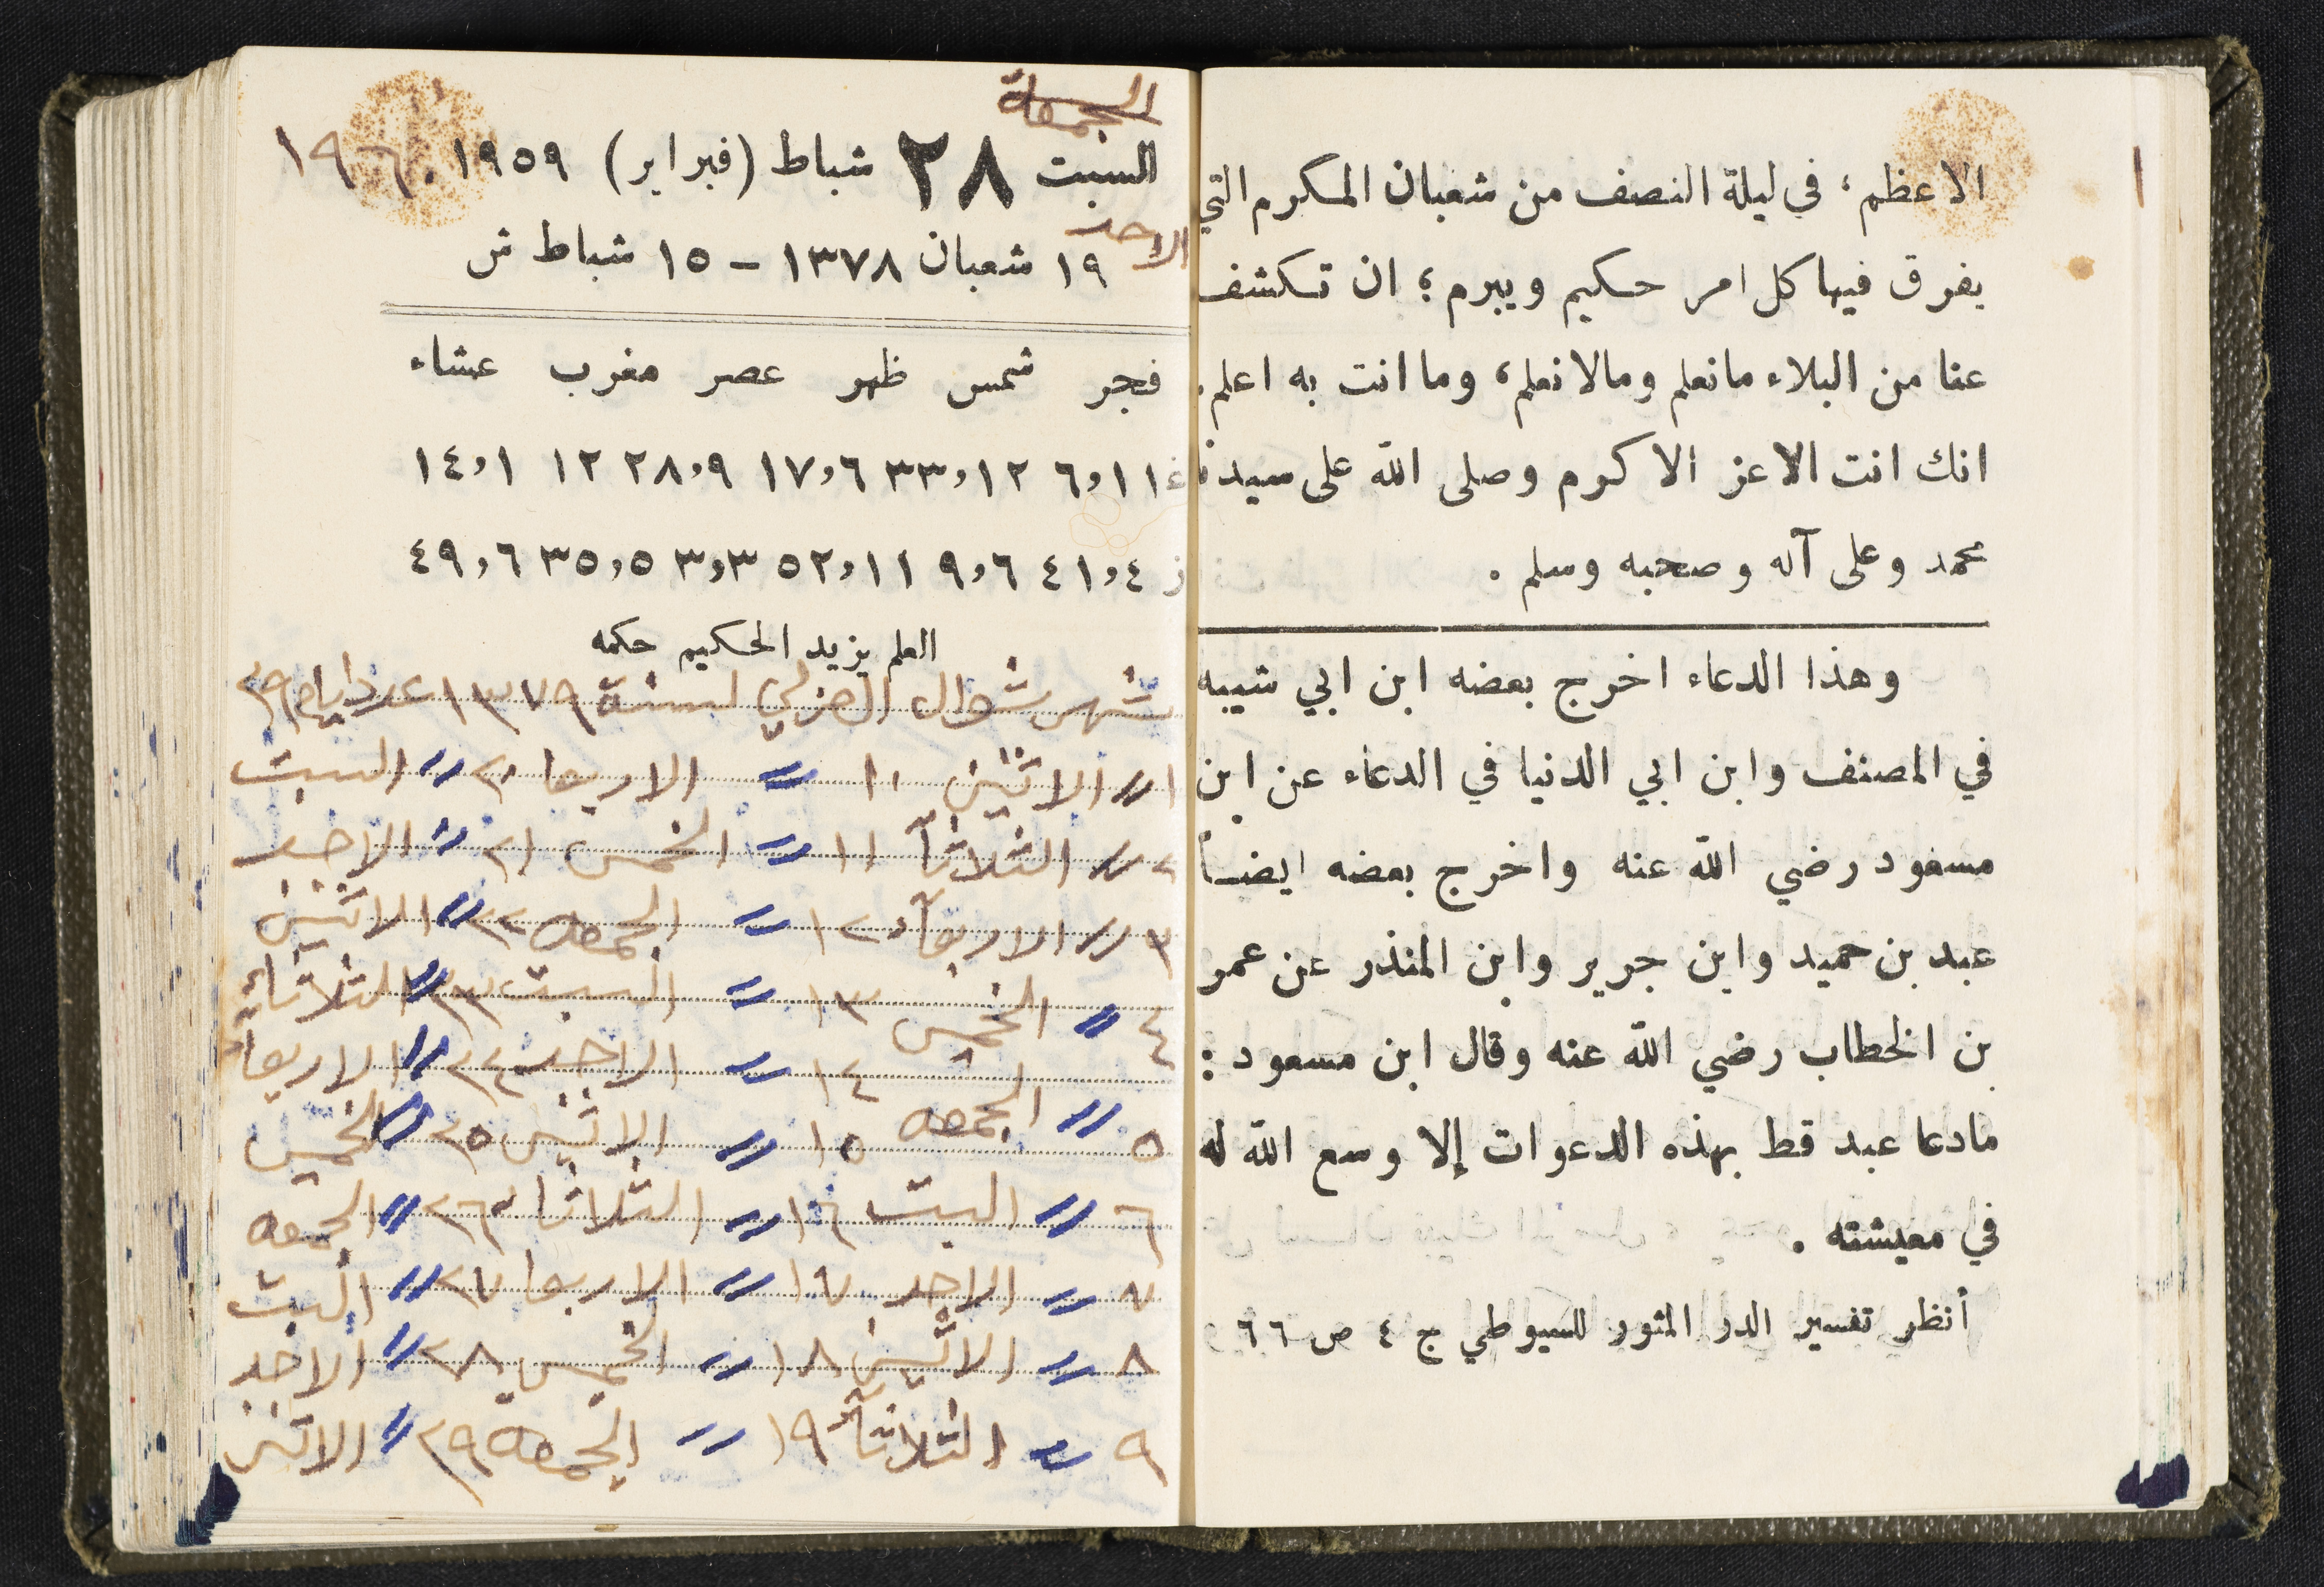 الاعظم؛ في ليلة النصف من شعبان المكرم التي
يفرق فيها كل امر حكيم ويبرم؛ ان تكشف
عنا من البلاء مانعلم ومالا نعلم، وما انت به اعلم.
انك انت الاعز الاكرم وصلى الله على سيدنا
محمد وعلى آله وصحبه وسلم .
وهذا الدعاء اخرج بعضه ابن ابي شيبه
في المصنف وابن ابي الدنيا في الدعاء عن ابن
مسعود رضي الله عنه واخرج بعضه ايضاً
عبد بن حميد وابن جرير وابن المنذر عن عمر
بن الخطاب رضي الله عنه وقال ابن مسعود :
مادعا عبد قط بهذه الدعوات إلا وسع الله له
في معيشته .
أنظر تفسير الدر المثور للسيوطي ج ٤ ص ٦٦
الجمعة
السبت ٢٨ شباط (فبراير) ١٩٥٩ ١٩٦٠
الاحد
١٩ شعبان ١٣٧٨ - ١٥ شباط ش
فجر شمس ظهر عصر مغرب عشاء
غ ٦,١١ ٣٣,١٢ ١٧,٦ ٢٨,٩ ١٢ ١٤,١
ز ٤١,٤ ٩,٦ ٥٢,١١ ٣,٣ ٣٥,٥ ٤٩,٦
العلم يزيد الحكيم حكمه
شهر شوال الهزلي لسنة ١٣٧٩ عدد ايام ٢٩
١ // الاثنين ١٠ // الاربعا ٢٠ // السبت
٢ // الثلاثآ ١١ // الخمس ٢١ // الاحد
٣ // الاربعآء ١٢ // الجمعه ٢٢ // الاثنين
٤ // الخميس ١٣ // السبت ٢٣ // الثلاثاء
٥ // الجمعه ١٤ // الاحد ٢٤ // الاربعآ
٦ // السبت ١٥ // الاثنين ٢٥ // الخميس
٧ // الاحد ١٦ // الثلاثا ٢٦ // الجمعه
٨ // الاثنين ١٧ // الاربعا ٢٧ // السبت
٩ // الثلاثآء ١٨ // الخميس ٢٨ // الاحد
١٩ // الجمعة ٢٩ // الاثنين